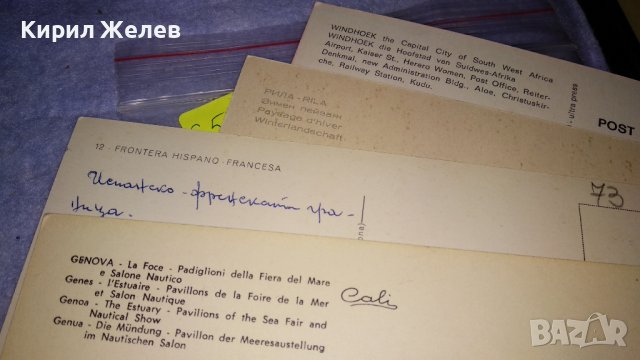 Кирил Желев
WINDHOEK the Capital City of South West Africa
WINDHOEK die Hoofstad van Suidwes-Afrika
Airport, Kaiser St., Herero Women, Post Office, Reiter-
Denkmal, new Administration Bldg., Aloe, Christuskir-
che, Railway Station, Kudu.
POST
РИЛА - RILA
Зимен пейзаж
Paysage d'hiver
Winterlandschaft
12 - FRONTERA HISPANO-FRANCESA
Испанско-френската гра-
ница.
73
GENOVA - La Foce - Padiglioni della Fiera del Mare
e Salone Nautico
Genes - l'Estuaire - Pavillons de la Foire de la Mer
et Salon Nautique
Genoa - The Estuary - Pavilions of the Sea Fair and
Nautical Show
Genua - Die Mündung - Pavillon der Meeresausstellung
im Nautischen Salon
Cali
BAZAR.BG